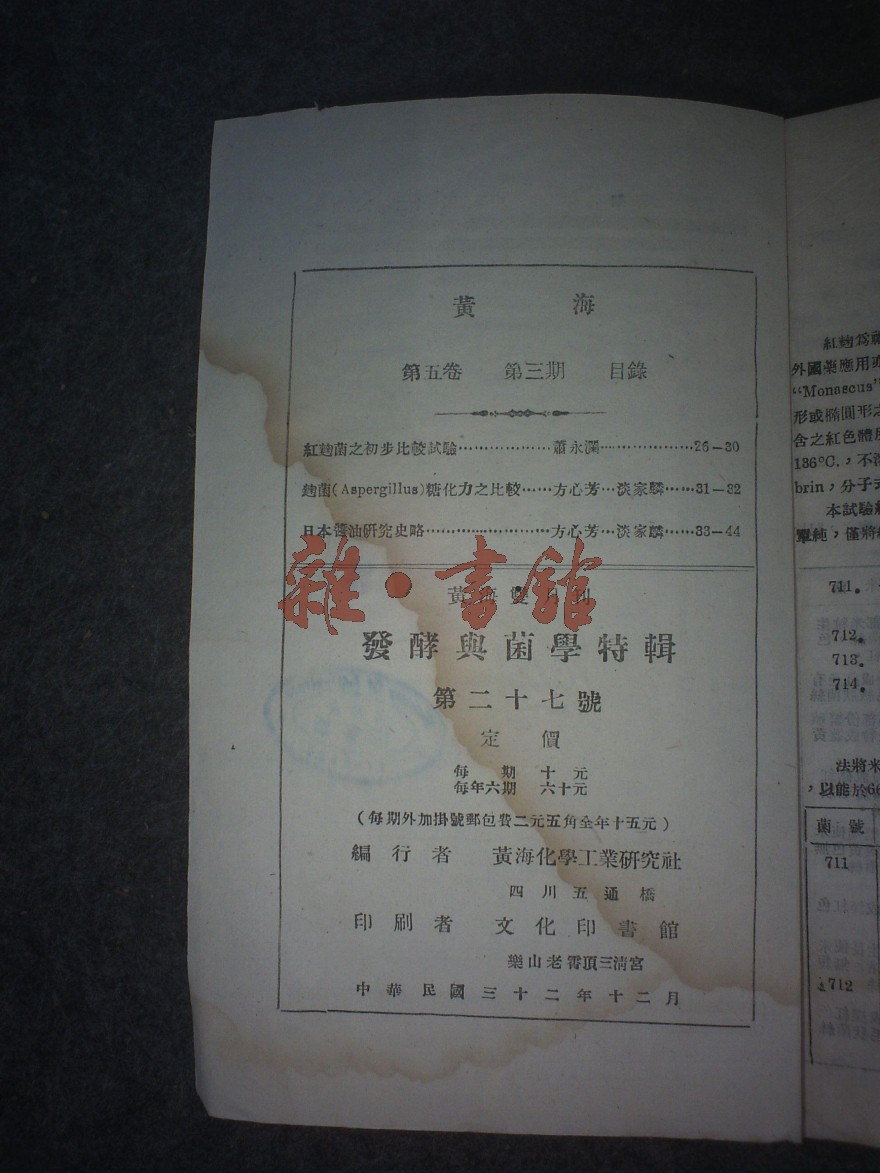 黃海
第五卷 第三期 目錄
紅麴菌之初步比較試驗………………蕭永瀾…………………26—30
麴菌(Aspergillus)糖化力之比較……方心芳…淡家麟……31—32
日本醬油研究史略………………………方心芳…淡家麟……33—44
雜·書館
黃海雙月刊
發酵與菌學特輯
第二十七號
定價
每期 十元
每年六期 六十元
(每期外加掛號郵包費二元五角全年十五元)
編行者 黃海化學工業研究社
四川五通橋
印刷者 文化印書館
樂山老霄頂三清宮
中華民國三十二年十二月
紅麴爲
外國藥應用
“Monascus”
形或橢圓形之
含之紅色體
136°C.,不
brin,分子
本試驗
單純,僅將
711.
712.
713.
714.
法將米
,以能於
菌號
711
712